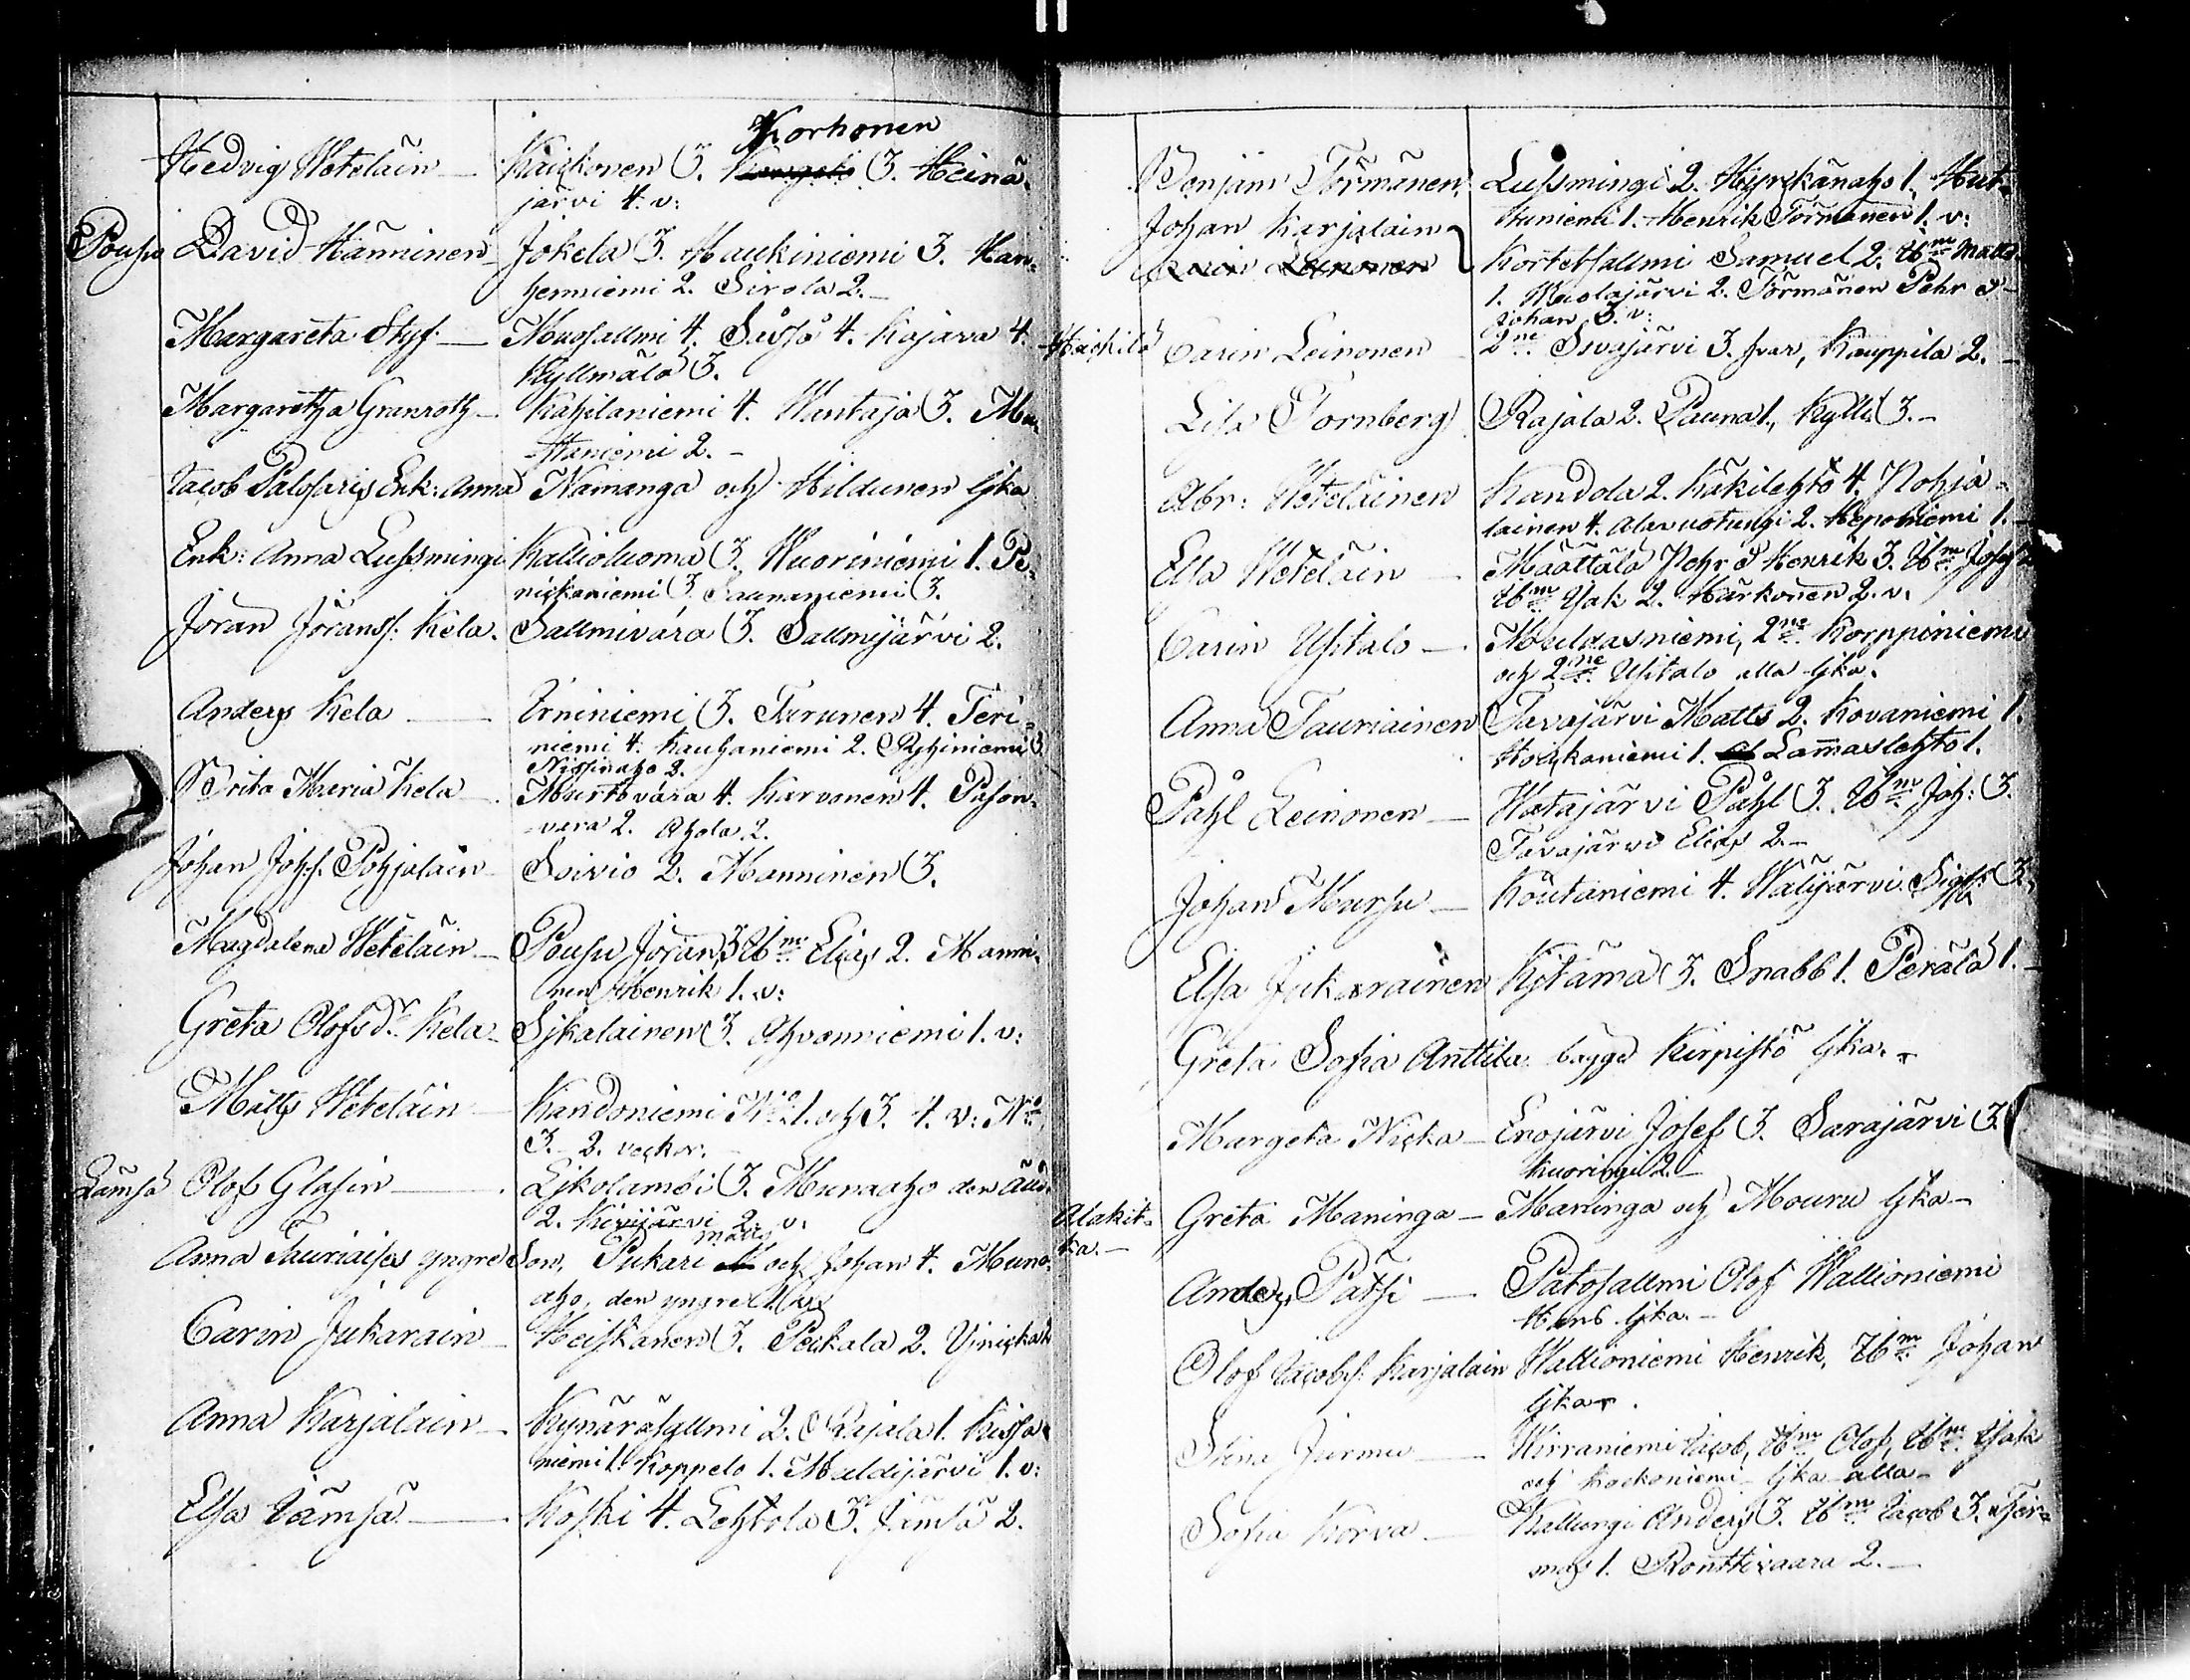 Korhonen
Hedvig Wetelăin — Karjkonen 3. 3. Heinä-
järvi 4. v:
Pousu David Hänninen — Jokela 3. Haukiniemi 3. Kar-
henniemi 2. Sirola 2. —
Margareta Skyf. — Muosallmi 4. Kajava 4.
Kyllmälä 3.
Margaretha Granroth — Kahilaniemi 4. Wirstaja 3. Mu-
staniemi 2. —
Jacob Palosaris Enk: Anna Namanga och Hildunen lika
Enk: Anna Lussmingi Kallioluoma 3. Wuoriniemi 1. Pe-
nickaniemi 3. Saunaniemi 3.
Jöran Jöranss: Kela. Sallmivára 3. Sallmijärvi 2.
Anders Kela — Irniniemi 3. Turunen 4. Teri-
niemi 4. Kauhaniemi 2. Ryhiniemi 3.
Nissinaho 2.
Brita Maria Kela — Murtovára 4. Karvonen 4. Pason-
vara 2. Ahola 2.
Johan Joh:s. Pohjalain — Soivio 2. Manninen 3.
Magdalena Wetelăin — Pousu Jöran 3 Ibm Elias 2. Manni-
nen Henrik 1. v:
Greta Olofsdr Kela — Sikalainen 3. Ahvenniemi 1. v:
Matts Wetelăin — Kandoniemi No 1. och 3. 4. v: No
3. 2. veckor.
Lämsä Olof Glasin — Likolambi 3. Munaaho den äld.
2. Kivijärvi 2. v:
Matts
Anna Tauriaises yngre Son, Pukari och Johan 4. Muna-
aho, den yngre 1.
Carin Jukarain — Heiskanen 3. Peckala 2.
Anna Karjalain — Kynäräsallmi 2. Rajala 1. Kissa-
niemi 1. Koppelo 1. Maldijärvi 1. v:
Elsa Jämsä — Koski 4. Lehtola 3. Jämsä 2.
Benjam Törmänen, Lussmingi 2. Hyrkänaho 1. Hut-
tuniemi 1. Henrik Törmänen 1. v:
Johan Karjalain
Carin Leinonen Kortessallmi Samuel 2. Ibm Matts
1. Kuolajärvi 2. Törmänen Pehr &
Johan 3. v:
Hackilä Carin Leinonen — 2ne Sivajärvi 3. hvar, Kauppila 2. —
Lisa Tornberg Rajala 2. Pauna 1., Kylli 3. —
Abr: Wetelăinen Kandola 2. Käkilehto 4. Pohja-
lainen 4. Alavuotungi 2. Heponiemi 1. —
Elsa Wetelăin — Määttälä Pehr & Henrik 3. Ibm Josef
Ibm Isak 2. Härkönen 2. v.
Carin Usitalo — Muldasniemi, 2ne Korppiniemi
och 2ne Usitalo alla lika.
Anna Tauriainen Tavajärvi Matts 2. Kovaniemi 1.
1. Lam̄aslehto 1.
Påhl Leinonen — Hatajärvi Påhl 3. Ibm Joh: 3.
Tavajärvi Elias 2. —
Johan Mursu — Koutaniemi 4. Wälijärvi 3.
Elsa Jukarainen Kitämä 3. Snabb 1. Perälä 1. —
Greta Sofia Anttila bägge Kirpistö lika.
Margeta Nicka — Enojärvi Josef 3. Sarajärvi 3.
Kuoringi 2. —
Alakit-
ka. — Greta Maninga — Maninga och Mouru lika —
Anders Pätsi — Patosallmi Olof Wallioniemi
Hans lika. —
Olof Jacobs: Karjalain Wallioniemi Henrik, Ibm Johan
lika.
Stina Jurmu — Wirraniemi Jacob, Ibm Olof, Ibm Isak
och lika alla —
Sofia Korva — Kallungi Anders 3. Ibm Jacob 3. Tör-
mäs 1. Ronttivaara 2. —